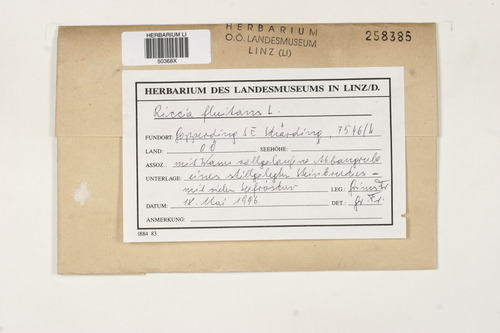 HERBARIUM LI
50368X
HERBARIUM
O.Ö. LANDESMUSEUM
LINZ (LI)
258385
HERBARIUM DES LANDESMUSEUMS IN LINZ/D.
Riccia fluitans L.
FUNDORT: Gopperding SE Schärding, 7546/4
LAND: OÖ SEEHÖHE:
ASSOZ.: mit Wasser vollgelaufene Abbaugrube
UNTERLAGE: eines stillgelegten Steinbruches -
mit vielen LEG.:
DATUM: 18. Mai 1996 DET.:
ANMERKUNG:
1884 83